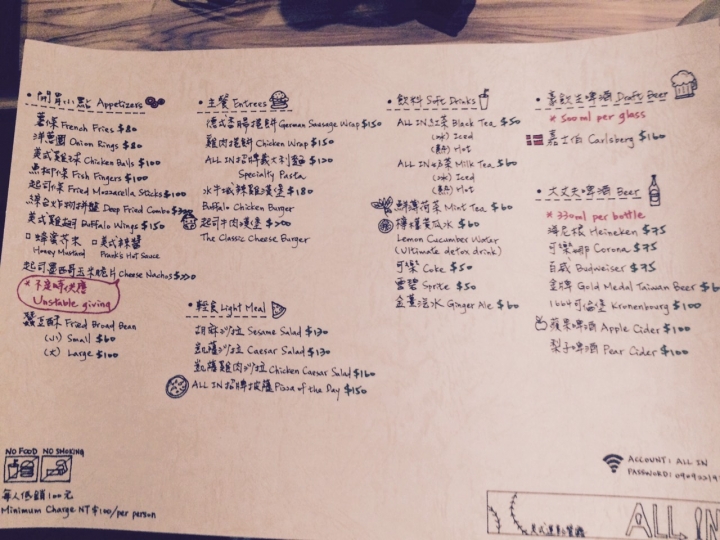 • 開胃小點 Appetizers
薯條 French Fries $80
洋蔥圈 Onion Rings $80
美式雞球 Chicken Balls $100
魚柳條 Fish Fingers $100
起司條 Fried Mozzarella Sticks $100
綜合炸物拼盤 Deep Fried Combo
美式雞翅 Buffalo Wings $150
□ 蜂蜜芥末 □ 美式辣醬
Honey Mustard Frank's Hot Sauce
起司墨西哥玉米脆片 Cheese Nachos
* 不定時供應
Unstable giving
蠶豆酥 Fried Broad Bean
(小) Small $60
(大) Large $100
• 主餐 Entrees
德式香腸捲餅 German Sausage Wrap $150
雞肉捲餅 Chicken Wrap $150
ALL IN 招牌義大利麵 $120
Specialty Pasta
水牛城辣雞漢堡 $180
Buffalo Chicken Burger
起司牛肉漢堡 $200
The Classic Cheese Burger
• 輕食 Light Meal
胡麻沙拉 Sesame Salad $130
凱薩沙拉 Caesar Salad $130
凱薩雞肉沙拉 Chicken Caesar Salad $160
ALL IN 招牌披薩 Pizza of the Day $150
• 飲料 Soft Drinks
ALL IN 紅茶 Black Tea $50
(冰) Iced
(熱) Hot
ALL IN 奶茶 Milk Tea $60
(冰) Iced
(熱) Hot
鮮薄荷茶 Mint Tea $60
檸檬黃瓜水 $60
Lemon Cucumber Water
(Ultimate detox drink)
可樂 Coke $50
雪碧 Sprite $50
金薑汽水 Ginger Ale $60
• 豪飲生啤酒 Draft Beer
* 500ml per glass
嘉士伯 Carlsberg $160
• 大丈夫啤酒 Beer
* 330ml per bottle
海尼根 Heineken $75
可樂娜 Corona $75
百威 Budweiser $75
金牌 Gold Medal Taiwan Beer
1664 可倫堡 Kronenbourg $100
蘋果啤酒 Apple Cider $100
梨子啤酒 Pear Cider $100
NO FOOD NO SMOKING
每人低銷100元
Minimum Charge NT$100/per person
ACCOUNT: ALL IN
PASSWORD:
美式運動餐廳
ALL IN